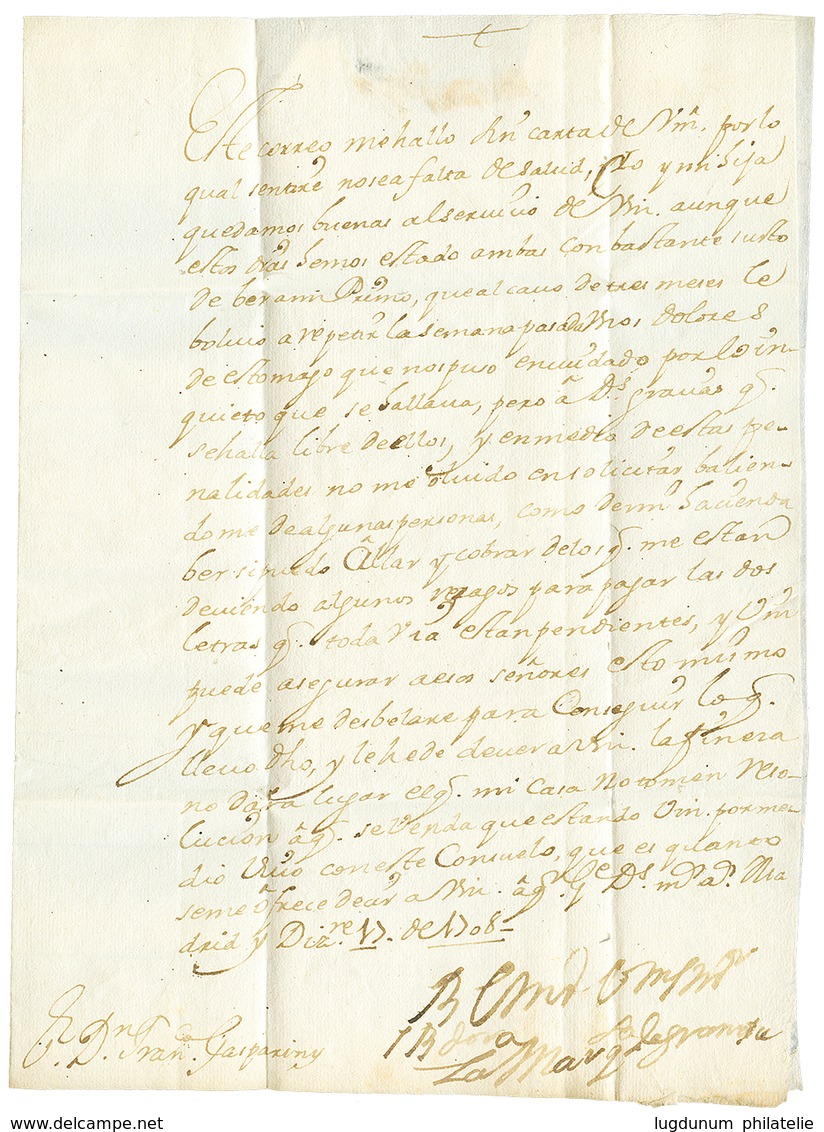 Este correo me hallo sin carta de Vm. por lo
qual sentire no sea falta de salud, Yo y mi hija
quedamos buenas al servicio de Vm. aunque
estos dias hemos estado ambas con bastante susto
de ber a mi Primo, que al cavo de tres meses le
bolvio a repetir la semana pasada Unos dolores
de estomago que nos puso en cuidado por lo in-
quieto que se hallava, pero â Ds. gracias q.
se halla libre de ellos, y en medio de estas pe-
nalidades no me olvido en solicitar balien-
dome de algunas personas, como de mi hacienda
ber si puedo âllar y cobrar de los q. me estan
deviendo algunos rezagos para pagar las dos
letras q. toda via estan pendientes, y Vm
puede asegurar a esos señores esto mismo
y que me desbelare para Conseguir lo q.
llevo dho, y le he de dever a Vm. la fineza
no dara lugar el q. mi Casa no tomen reso-
lucion âq. se Venda que estando Vm. por me-
dio vivo con este Consuelo, que es quanto
se me ôfrece decir a Vm. âq. Ge Ds. ms. as. Ma
drid y Dizre. 17. de 1708-
La Marqsa de la granja
Sr. Dn. Franco. Gaspariny
www.delcampe.net
lugdunum philatelie